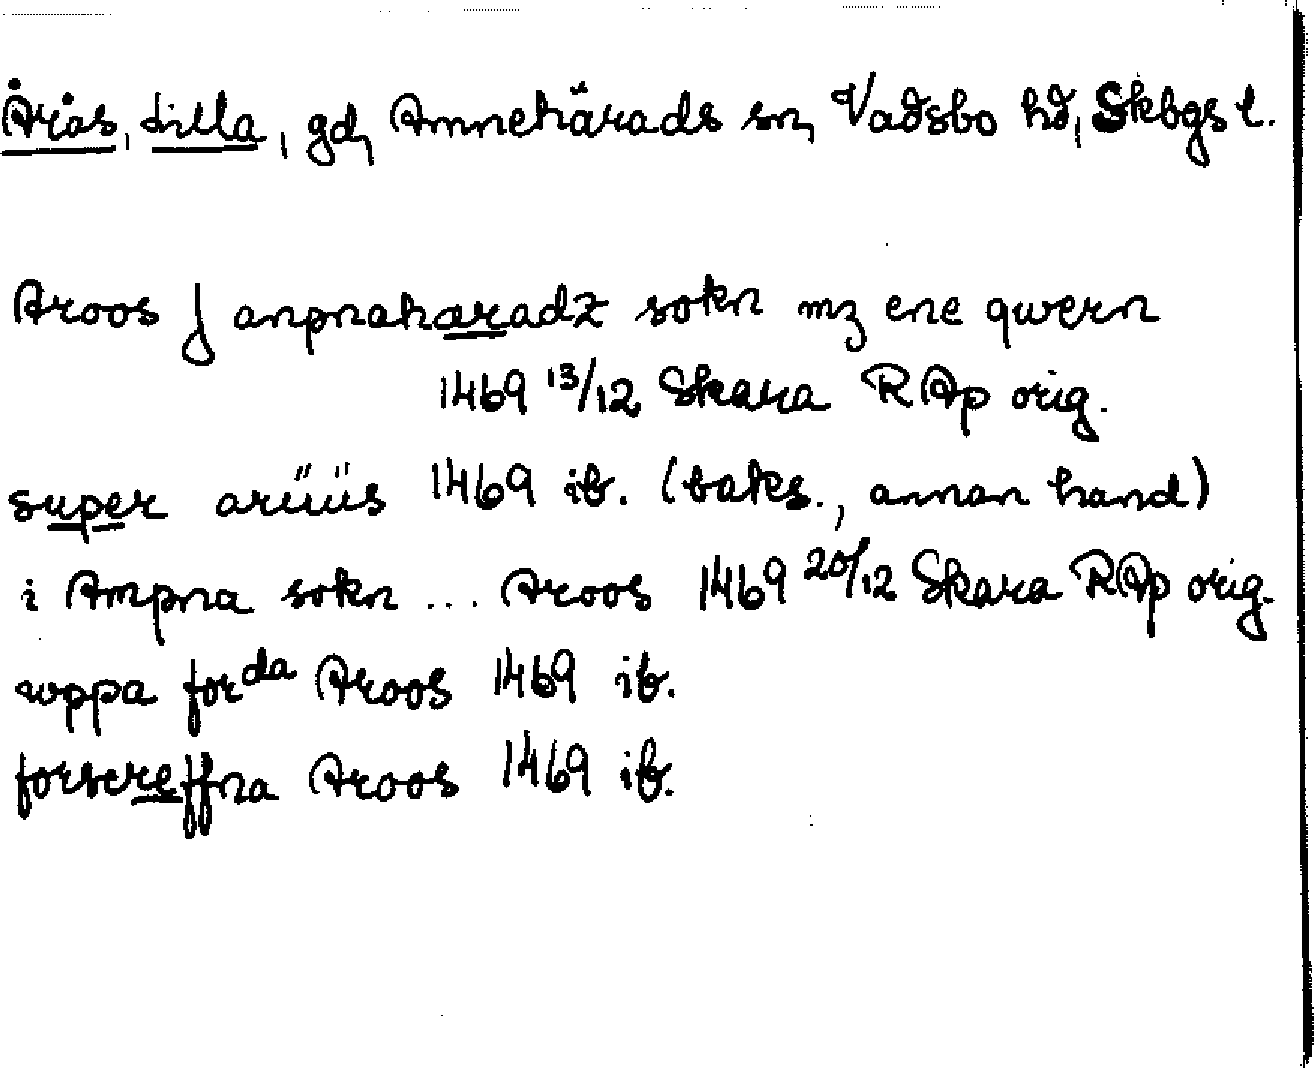 Årås, Lilla, gd, Amnehärads sn, Vadsbo hd, Skbgs l.
Aroos j anpnaharadz sokn mz ene qwern
1469 13/12 Skara RAp orig.
super arüüs 1469 ib. (baks., annan hand)
i Ampna sokn ... Aroos 1469 20/12 Skara RAp orig.
uppa forda Aroos 1469 ib.
forscreffna Aroos 1469 ib.